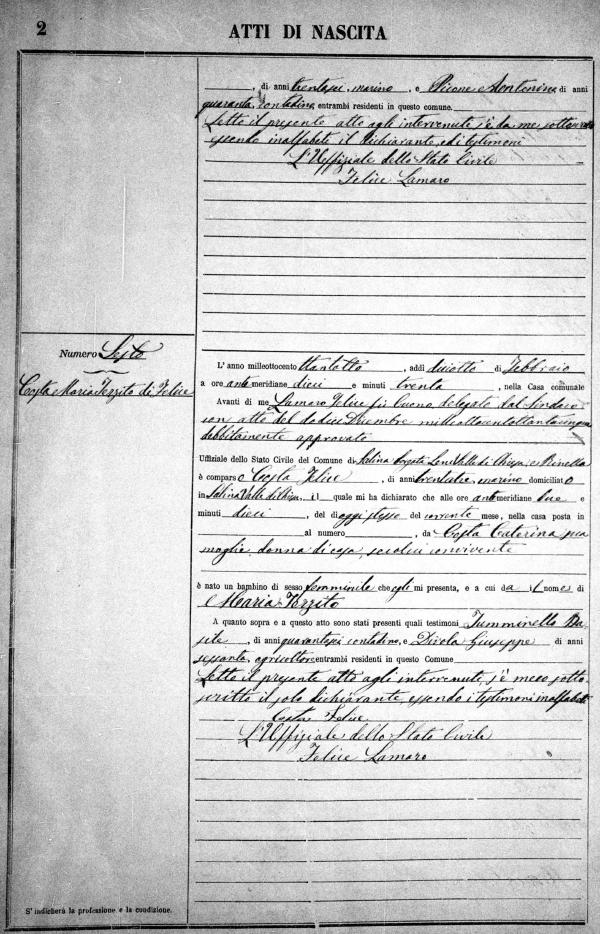 2
ATTI DI NASCITA
, di anni trentasei, marino, e Picone Antonino di anni
quaranta, contadino, entrambi residenti in questo comune.
Letto il presente atto agli intervenuti, s'è da me sottoscritto
essendo inalfabeti il dichiarante, ed i testimoni
L'Uffiziale dello Stato Civile
Felice Lamaro
Numero Sesto
Costa Maria Terzito di Felice
L'anno milleottocento ttantotto, addì diciotto di Febbraio
a ore antemeridiane dieci e minuti trenta, nella Casa comunale
Avanti di me Lamaro Felice fu Cuono, delegato dal Sindaco
con atto del dodici Dicembre milleottocentottantacinque
debbitamente approvato
Uffiziale dello Stato Civile del Comune di Salina borgata Leni Valle di Chiesa, e Rinella
è comparso Costa Felice, di anni trentatre, marino domiciliato
in Salina Valle di Chiesa, il quale mi ha dichiarato che alle ore antemeridiane due e
minuti dieci, del dì oggi stesso del corrente mese, nella casa posta in
al numero, da Costa Caterina sua
moglie, donna di casa, secolui convivente
è nato un bambino di sesso femminile che egli mi presenta, e a cui dà il nomes di
Maria Terzito
A quanto sopra e a questo atto sono stati presenti quali testimoni Tumminello
, di anni quarantasei contadino, e Divola Giuseppe di anni
sessanta, agricoltore entrambi residenti in questo Comune
Letto il presente atto agli intervenuti, s'è meco sotto-
scritto il solo dichiarante, essendo i testimoni inalfabeti
Costa Felice
L'Uffiziale dello Stato Civile
Felice Lamaro
S'indicherà la professione e la condizione.